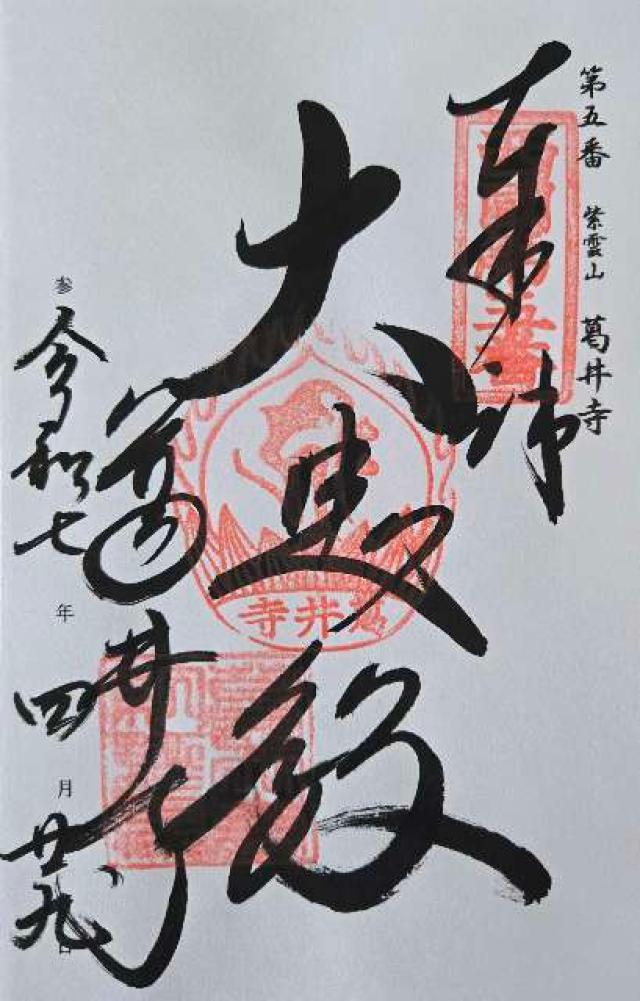 第五番 紫雲山 葛井寺
奉拝
西国第五番
大悲殿
葛井寺
葛井寺
参 令和七年四月廿九日